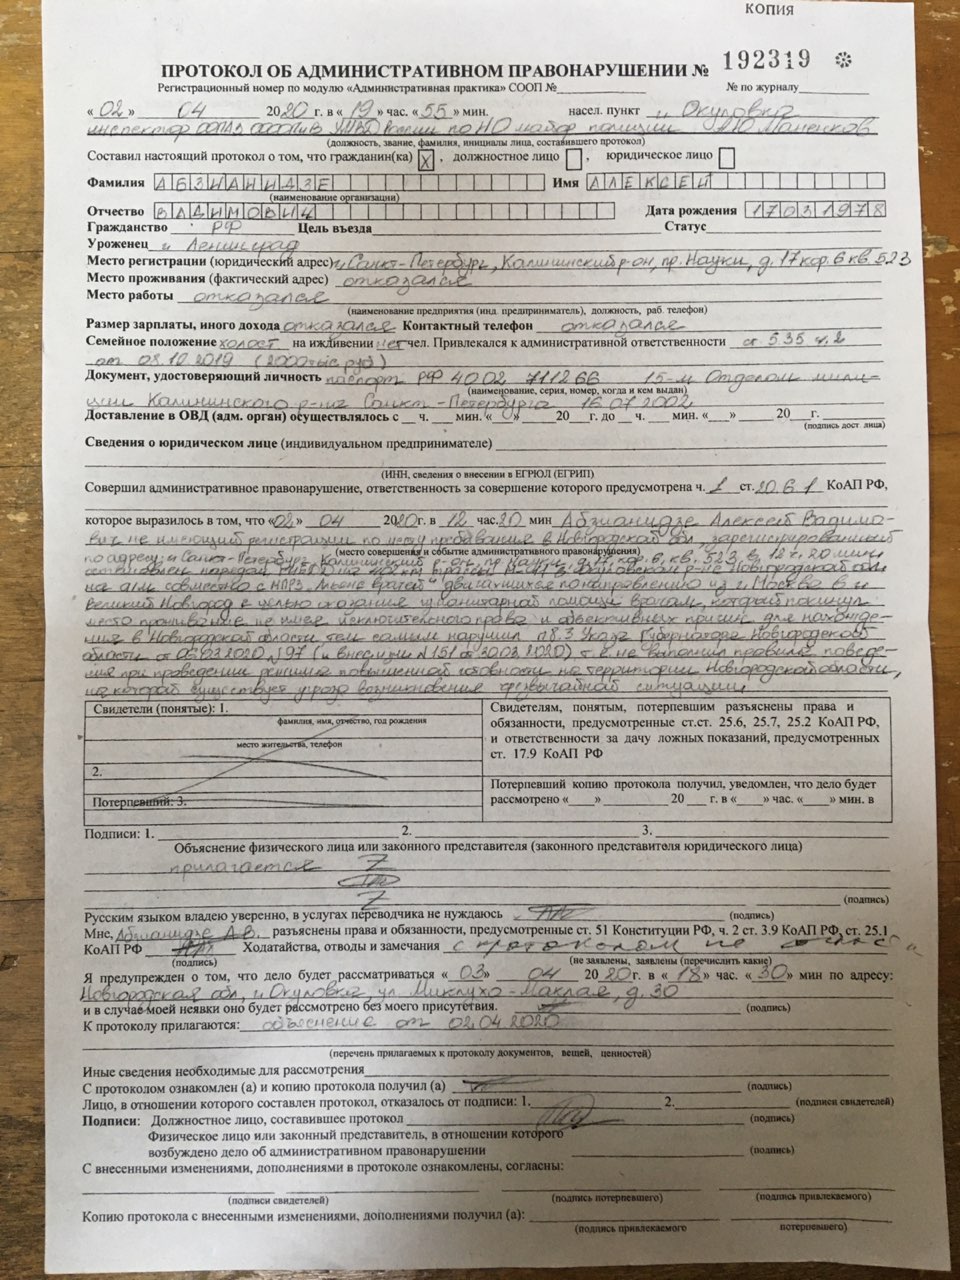 КОПИЯ
ПРОТОКОЛ ОБ АДМИНИСТРАТИВНОМ ПРАВОНАРУШЕНИИ № 192319
Регистрационный номер по модулю «Административная практика» СООП №
№ по журналу
« 02 » 04 2020 г. в « 19 » час. « 55 » мин. насел. пункт г. Окуловка
инспектор УМВД России по НО майор полиции А.Ю. Маненков
(должность, звание, фамилия, инициалы лица, составившего протокол)
Составил настоящий протокол о том, что гражданин(ка) X , должностное лицо , юридическое лицо
Фамилия АБЗИАНИДЗЕ Имя АЛЕКСЕЙ
(наименование организации)
Отчество ВАДИМОВИЧ Дата рождения 17031978
Гражданство РФ Цель въезда Статус
Уроженец г. Ленинград
Место регистрации (юридический адрес) г. Санкт-Петербург, Калининский р-он, пр. Науки, д. 17 кор. 6 кв. 523
Место проживания (фактический адрес) отказался
Место работы отказался
(наименование предприятия (инд. предприниматель), должность, раб. телефон)
Размер зарплаты, иного дохода отказался Контактный телефон отказался
Семейное положение холост на иждивении нет чел. Привлекался к административной ответственности ст 5 35 ч. 2
от 03.10.2019 (2000 тыс руб)
Документ, удостоверяющий личность паспорт РФ 4002 711266 15-м Отделом мили-
(наименование, серия, номер, когда и кем выдан)
ции Калининского р-на Санкт-Петербурга 16.07.2002
Доставление в ОВД (адм. орган) осуществлялось с ч. мин. « » 20 г. до ч. мин. « » 20 г.
(подпись дост. лица)
Сведения о юридическом лице (индивидуальном предпринимателе)
(ИНН, сведения о внесении в ЕГРЮЛ (ЕГРИП)
Совершил административное правонарушение, ответственность за совершение которого предусмотрена ч. 1 ст. 20.6.1 КоАП РФ,
которое выразилось в том, что «02» 04 2020 г. в 12 час. 20 мин Абзианидзе Алексей Вадимо-
вич не имеющий регистрации по месту пребывания в Новгородской обл, зарегистрированный
(место совершения и событие административного правонарушения)
по адресу: г Санкт-Петербург Калининский р-он, пр. Науки д. 17 кор. 6, кв. 523 в 12 ч. 20 мин
Новгородской обл
на а/м совместно с НПРЗ "Альянс врачей" двигавшихся по направлению из г. Москва в г.
Великий Новгород с целью оказания гуманитарной помощи врачам, который покинул
место проживание не имея исключительного права и объективных причин для нахожде-
ния в Новгородской области тем самым нарушил п 8.3 Указа Губернатора Новгородской
области от 06.03.2020 №97 (и внес. изм N 151 от 30.03.2020) т. е не выполнил правила поведе-
ния при проведении режима повышенной готовности на территории Новгородской области,
на которой существует угроза возникновения чрезвычайной ситуации
Свидетели (понятые): 1.
фамилия, имя, отчество, год рождения
место жительства, телефон
2.
Потерпевший: 3.
Свидетелям, понятым, потерпевшим разъяснены права и
обязанности, предусмотренные ст.ст. 25.6, 25.7, 25.2 КоАП РФ,
и ответственности за дачу ложных показаний, предусмотренных
ст. 17.9 КоАП РФ
Потерпевший копию протокола получил, уведомлен, что дело будет
рассмотрено « » 20 г. в « » час. « » мин. в
Подписи: 1. 2. 3.
Объяснение физического лица или законного представителя (законного представителя юридического лица)
прилагается
(подпись)
Русским языком владею уверенно, в услугах переводчика не нуждаюсь (подпись)
Мне, Абзианидзе А.В. разъяснены права и обязанности, предусмотренные ст. 51 Конституции РФ, ч. 2 ст. 3.9 КоАП РФ, ст. 25.1
КоАП РФ Ходатайства, отводы и замечания с протоколом не
(подпись) (не заявлены, заявлены (перечислить какие)
Я предупрежден о том, что дело будет рассматриваться « 03 » 04 2020 г. в « 18 » час. « 30 » мин по адресу:
Новгородская обл, г. Окуловка ул Миклухо-Маклая, д. 30
и в случае моей неявки оно будет рассмотрено без моего присутствия. (подпись)
К протоколу прилагаются: объяснение от 02.04.2020
(перечень прилагаемых к протоколу документов, вещей, ценностей)
Иные сведения необходимые для рассмотрения
С протоколом ознакомлен (а) и копию протокола получил (а) (подпись)
Лицо, в отношении которого составлен протокол, отказалось от подписи: 1. 2. (подписи свидетелей)
Подписи: Должностное лицо, составившее протокол (подпись)
Физическое лицо или законный представитель, в отношении которого
возбуждено дело об административном правонарушении (подпись)
С внесенными изменениями, дополнениями в протоколе ознакомлены, согласны:
(подписи свидетелей) (подпись потерпевшего) (подпись привлекаемого)
Копию протокола с внесенными изменениями, дополнениями получил (а):
(подпись привлекаемого потерпевшего)